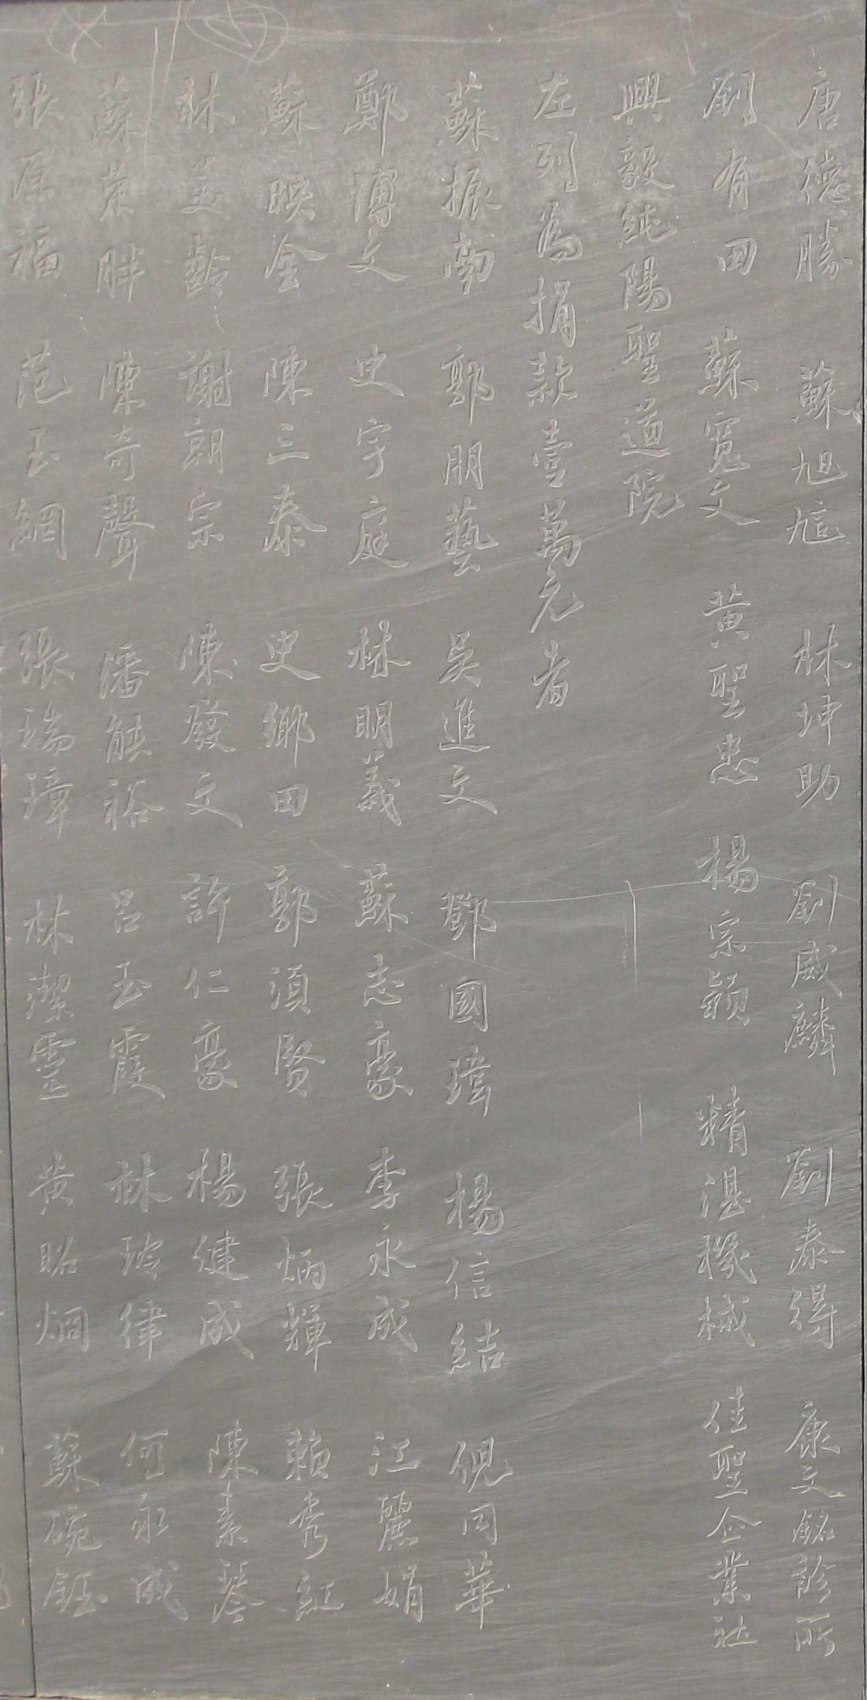 唐德勝 蘇旭 林坤助 劉威麟 劉泰得 康文銘診所
劉有田 蘇寬文 黃聖忠 楊宗穎 精湛機械 佳聖企業社
興毅純陽聖道院
左列為捐款壹萬元者
蘇振南 郭朋藝 吳進文 鄧國瑋 楊信結 倪同華
鄭博文 史宇庭 林明義 蘇志豪 李永成 江麗娟
蘇映全 陳三泰 史鄉田 郭須賢 張炳輝 賴秀紅
林美齡 謝朝宗 陳發文 許仁豪 楊健成 陳素琴
蘇胖 陳奇聲 潘毓裕 呂玉霞 林玲律 何永成
張原福 范玉綢 張瑞璋 林潔靈 黃昭炯 蘇碗鈺